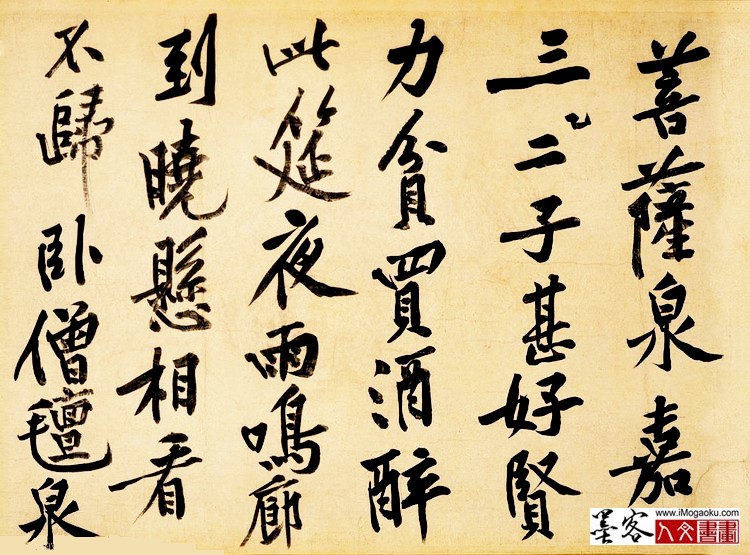 菩薩泉嘉
三二子甚好賢
力貧買酒醉
此筵夜雨鳴廊
到曉懸相看
不歸卧僧氈泉
墨客
www.iMogaoku.com
人文書畫